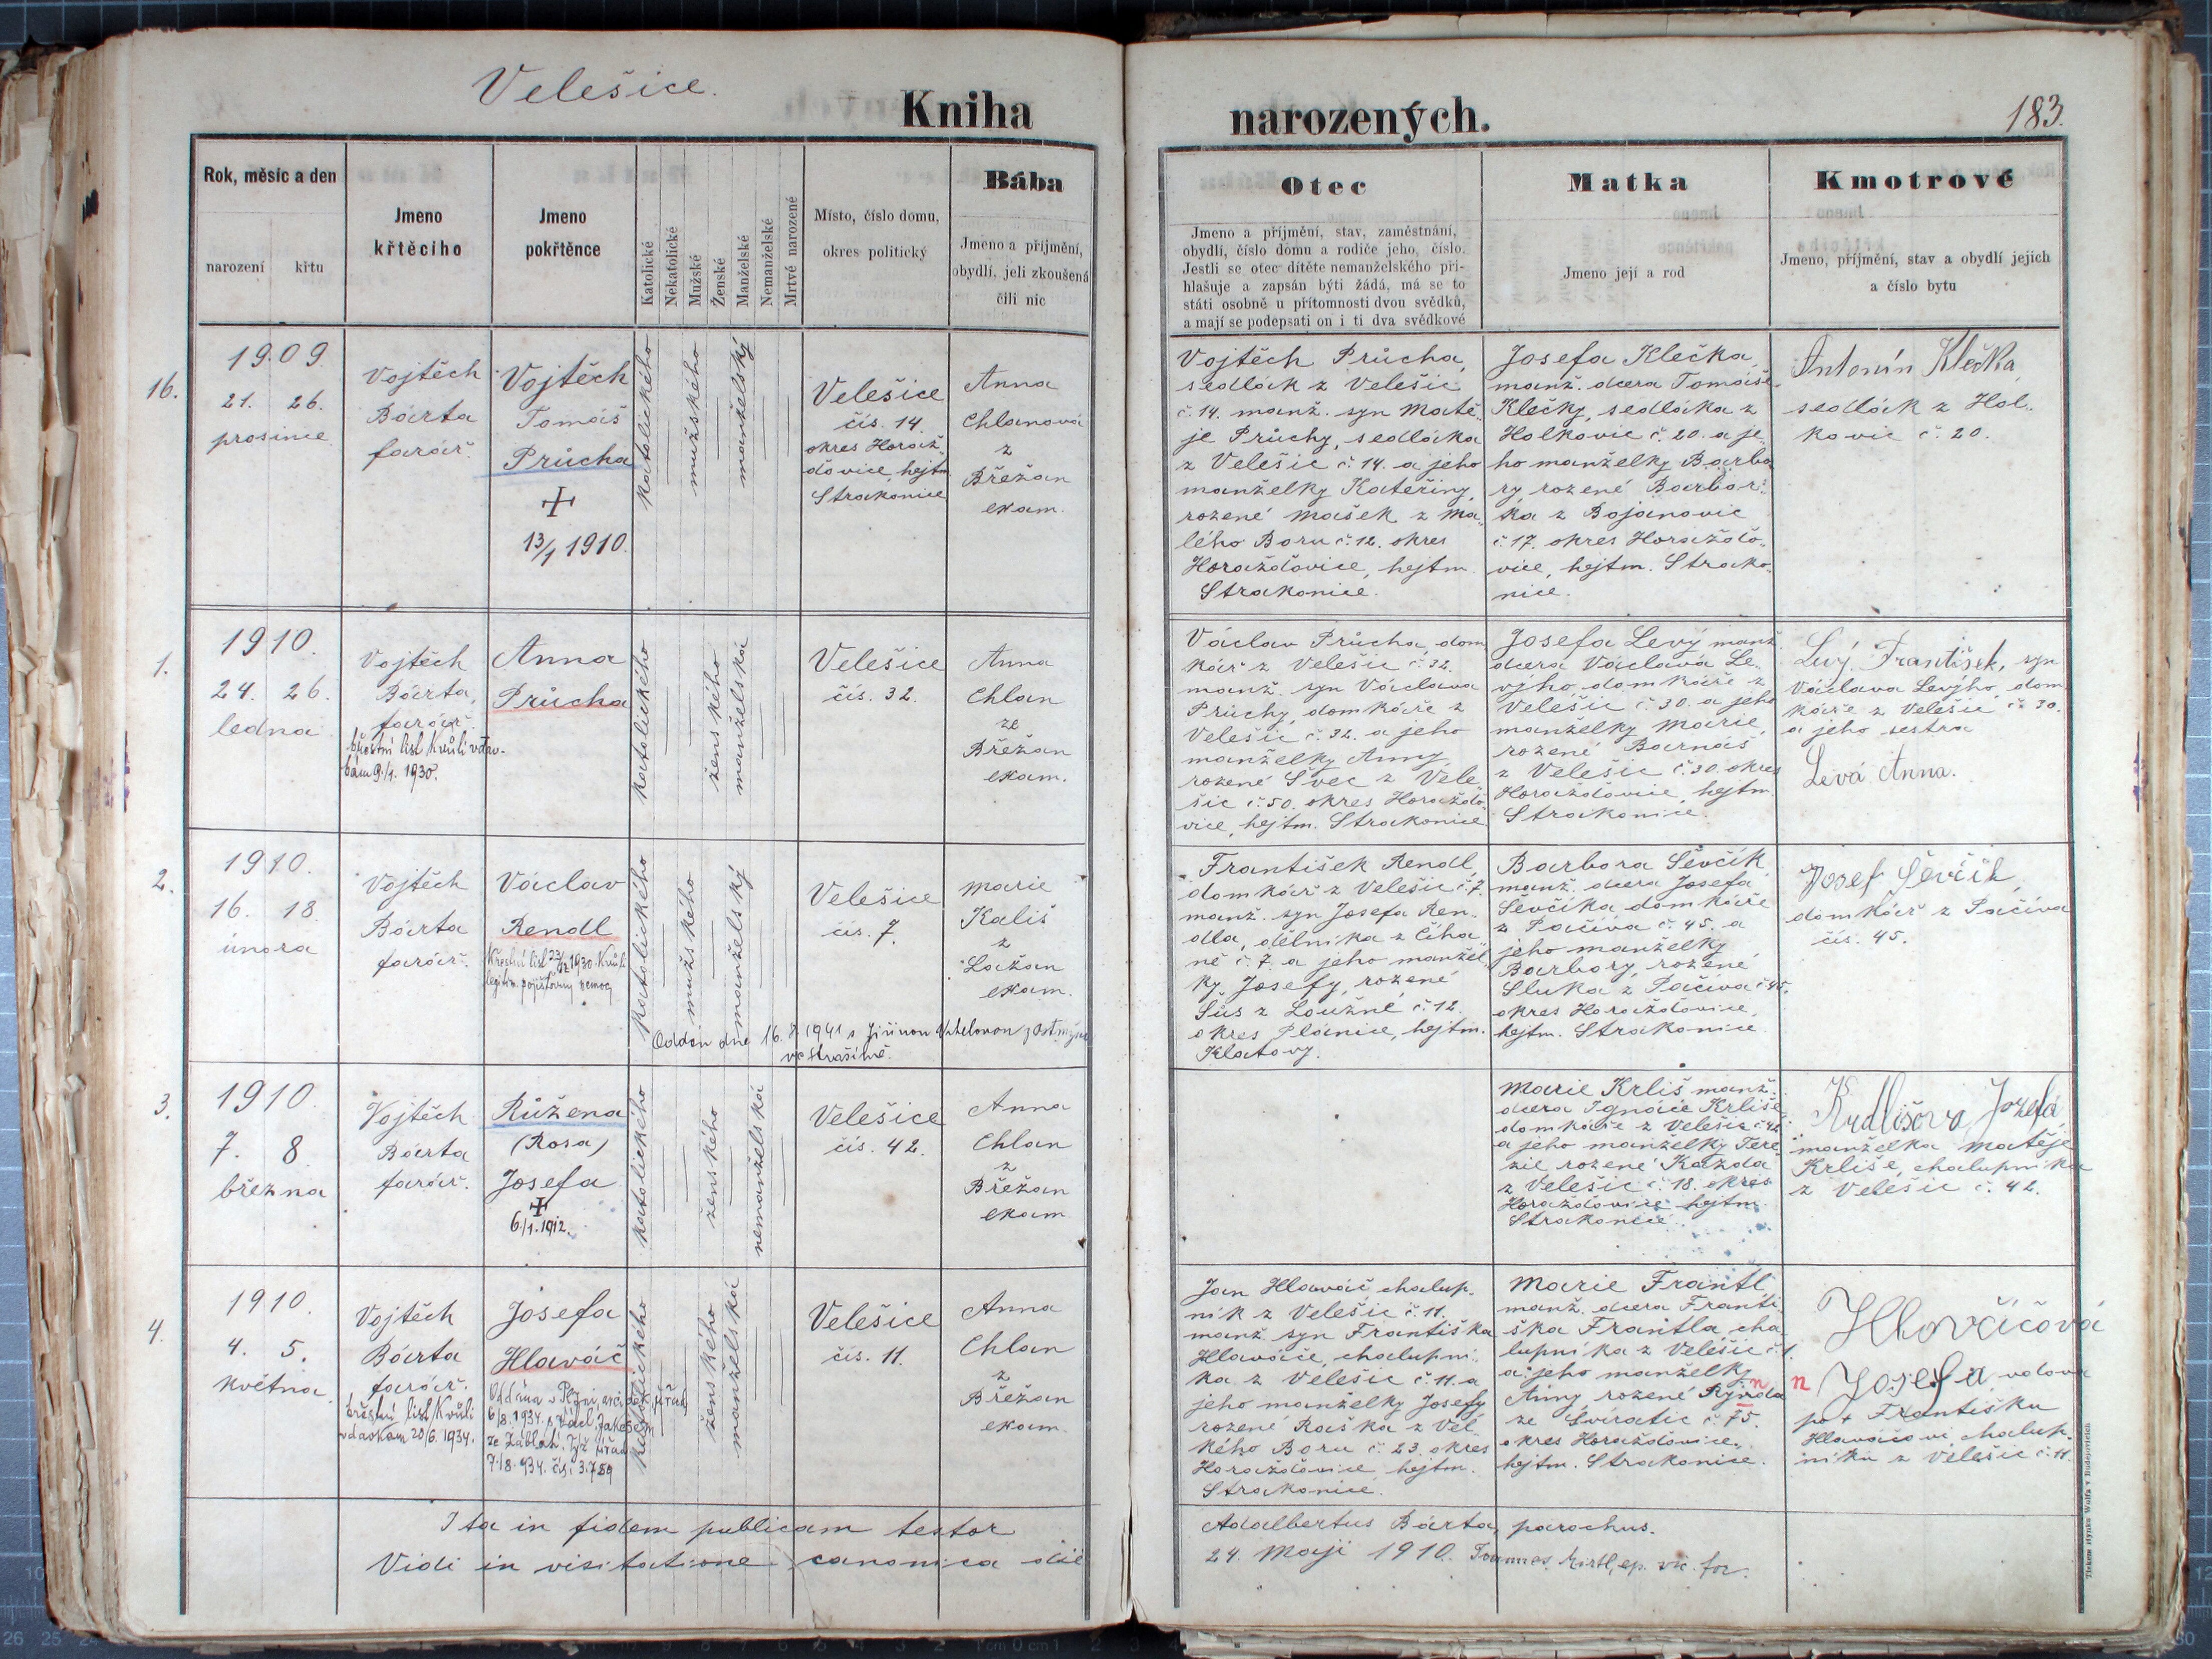 Velešice.
Kniha
narozených.
183.
Rok, měsíc a den
narození křtu
Jmeno
křtěcího
Jmeno
pokřtěnce
Katolické
Nekatolické
Mužské
Ženské
Manželské
Nemanželské
Mrtvé narozené
Místo, číslo domu,
okres politický
Bába
Jmeno a přijmění,
obydlí, jeli zkoušená
čili nic
Otec
Jmeno a příjmění, stav, zaměstnání,
obydlí, číslo domu a rodiče jeho, číslo.
Jestli se otec dítěte nemanželského při-
hlašuje a zapsán býti žádá, má se to
státi osobně u přítomnosti dvou svědků,
a mají se podepsati on i ti dva svědkové
Matka
Jmeno její a rod
Kmotrové
Jmeno, příjmění, stav a obydlí jejich
a číslo bytu
16.
1909.
21. 26.
prosince
Vojtěch
Bárta
farář.
Vojtěch
Tomáš
Průcha
+
13/1 1910.
katolického
mužského
manželský
Velešice
čís. 14.
okres Horaž-
dovice, hejtm.
Strakonice
Anna
Chlanová
z
Břežan
exam.
Vojtěch Průcha,
sedlák z Velešic
č. 14. manž. syn Matě-
je Průchy, sedláka
z Velešic č. 14. a jeho
manželky Kateřiny,
rozené Mašek z Ma-
lého Boru č. 12. okres
Horažďovice, hejtm.
Strakonice.
Josefa Klečka
manž. dcera Tomáše
Klečky, sedláka z
Holkovic č. 20. a je-
ho manželky Barbo-
ry, rozené Barbor-
ka z Bojanovic
č. 17. okres Horažďo-
vice, hejtm. Strako-
nice.
Antonín Klečka,
sedlák z Hol-
kovic č. 20.
1.
1910.
24. 26.
ledna
Vojtěch
Bárta,
farář.
křestní list kvůli vdav-
bám 9./1. 1930.
Anna
Průcha
katolického
ženského
manželská
Velešice
čís. 32.
Anna
Chlan
ze
Břežan
exam.
Václav Průcha, dom-
kář z Velešic č. 32.
manž. syn Václava
Průchy, domkáře z
Velešic č. 32. a jeho
manželky Anny,
rozené Švec z Vele-
šic č. 50. okres Horažďo-
vice, hejtm. Strakonice
Josefa Levý manž.
dcera Václava Le-
výho, domkáře z
Velešic č. 30. a jeho
manželky Marie,
rozené Barnáš
z Velešic č. 30. okres
Horažďovice, hejtm.
Strakonice.
Levý František, syn
Václava Levýho, dom-
káře z Velešic č. 30.
a jeho sestra
Levá Anna.
2.
1910.
16. 18.
února
Vojtěch
Bárta
farář.
Václav
Rendl
Křestní list 23/12 1930. Kvůli
legitim. pojišťovny nemoc.
katolického
mužského
manželský
Velešice
čís. 7.
Marie
Kališ
z
Lažan
exam.
Oddán dne 16. 8. 1941 s Jiřinou
ve Strašíně.
František Rendl,
domkář z Velešic č. 7.
manž. syn Josefa Ren-
dla, dělníka z Čiha-
ně č. 7. a jeho manžel-
ky Josefy, rozené
Šus z Loužné č. 12.
okres Plánice, hejtm.
Klatovy.
Barbora Ševčík,
manž. dcera Josefa
Ševčíka domkáře
z Pačiva č. 45. a
jeho manželky
Barbory, rozené
Sluka z Pačiva č. 45.
okres Horažďovice,
hejtm. Strakonice.
Josef Ševčík,
domkář z Pačiva
čís. 45.
3.
1910.
7. 8.
března
Vojtěch
Bárta
farář.
Růžena
(Rosa)
Josefa
+
6./1. 1912.
katolického
ženského
nemanželská
Velešice
čís. 42.
Anna
Chlan
z
Břežan
exam.
Marie Krliš manž.
dcera Ignáce Krliše,
domkáře z Velešic č. 42.
a jeho manželky Tere-
zie rozené Každa
z Velešic č. 18. okres
Horažďovice hejtm.
Strakonice.
Krdlišova Jozefa,
manželka Matěje
Krliše, chalupníka
z Velešic č. 42.
4.
1910.
4. 5.
května
Vojtěch
Bárta
farář.
křestní list kvůli
vdavkám 20/6. 1934.
Josefa
Hlaváč
Oddána v Plzni, arciděk. úřad
6/8. 1934. s Václ. Jakešem
ze Záblatí. Týž úřad
7./8. 934. čís. 3.759
katolického
ženského
manželská
Velešice
čís. 11.
Anna
Chlan
z
Břežan
exam.
Jan Hlaváč, chalup-
ník z Velešic č. 11.
manž. syn Františka
Hlaváče, chalupní-
ka z Velešic č. 11. a
jeho manželky Josefy
rozené Raška z Vel-
kého Boru č. 23. okres
Horažďovice, hejtm.
Strakonice.
Marie Frantl
manž. dcera Franti-
ška Frantla, cha-
lupníka z Velešic č. 1.
a jeho manželky
Anny, rozené Rynda
ze Svíratic č. 75.
okres Horažďovice,
hejtm. Strakonice.
n n
Hlovačičová
Josefa, vdova
po + Františku
Hlaváčovi chalup-
níku z Velešic č. 11.
Ita in fidem publicam testor
Adalbertus Bárta, parochus.
Vidi in visitatione canonica die
24. Maji 1910. Joannes Hirtl, ep. vic. for.
Tiskem Hynka Wolfa v Budějovicích